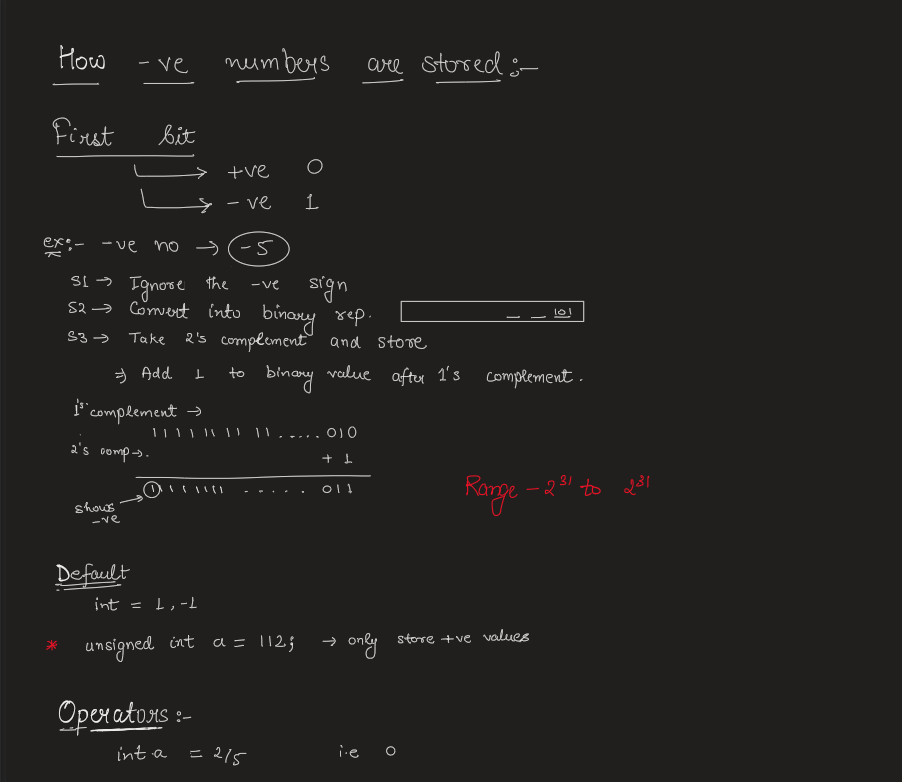 How -ve numbers are stored :-
First bit
→ +ve 0
→ -ve 1
ex:- -ve no → -5
S1 → Ignore the -ve sign
S2 → Convert into binary rep. _ _ 101
S3 → Take 2's complement and store
⇒ Add 1 to binary value after 1's complement.
1's complement →
1 1 1 1 1 1 1 1 1 1 ..... 010
2's comp →. + 1
1 1 1 1 1 1 1 1 ...... 011
shows -ve
Range -2^31 to 2^31
Default
int = 1, -1
* unsigned int a = 112; → only store +ve values
Operators :-
int a = 2/5 i.e 0